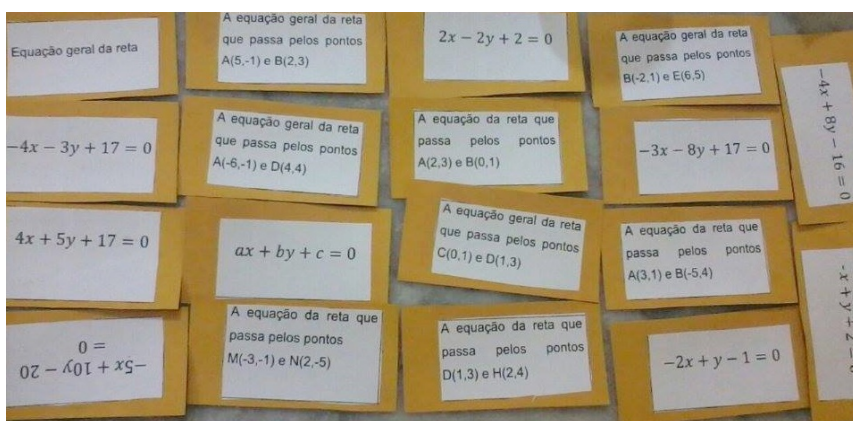 Equação geral da reta
A equação geral da reta
que passa pelos pontos
A(5,-1) e B(2,3)
2x − 2y + 2 = 0
A equação geral da reta
que passa pelos pontos
B(-2,1) e E(6,5)
−4x + 8y − 16 = 0
−4x − 3y + 17 = 0
A equação geral da reta
que passa pelos pontos
A(-6,-1) e D(4,4)
A equação da reta que
passa pelos pontos
A(2,3) e B(0,1)
−3x − 8y + 17 = 0
4x + 5y + 17 = 0
ax + by + c = 0
A equação geral da reta
que passa pelos pontos
C(0,1) e D(1,3)
A equação da reta que
passa pelos pontos
A(3,1) e B(-5,4)
−5x + 10y − 20
= 0
A equação da reta que
passa pelos pontos
M(-3,-1) e N(2,-5)
A equação da reta que
passa pelos pontos
D(1,3) e H(2,4)
−2x + y − 1 = 0
-x + y + 2